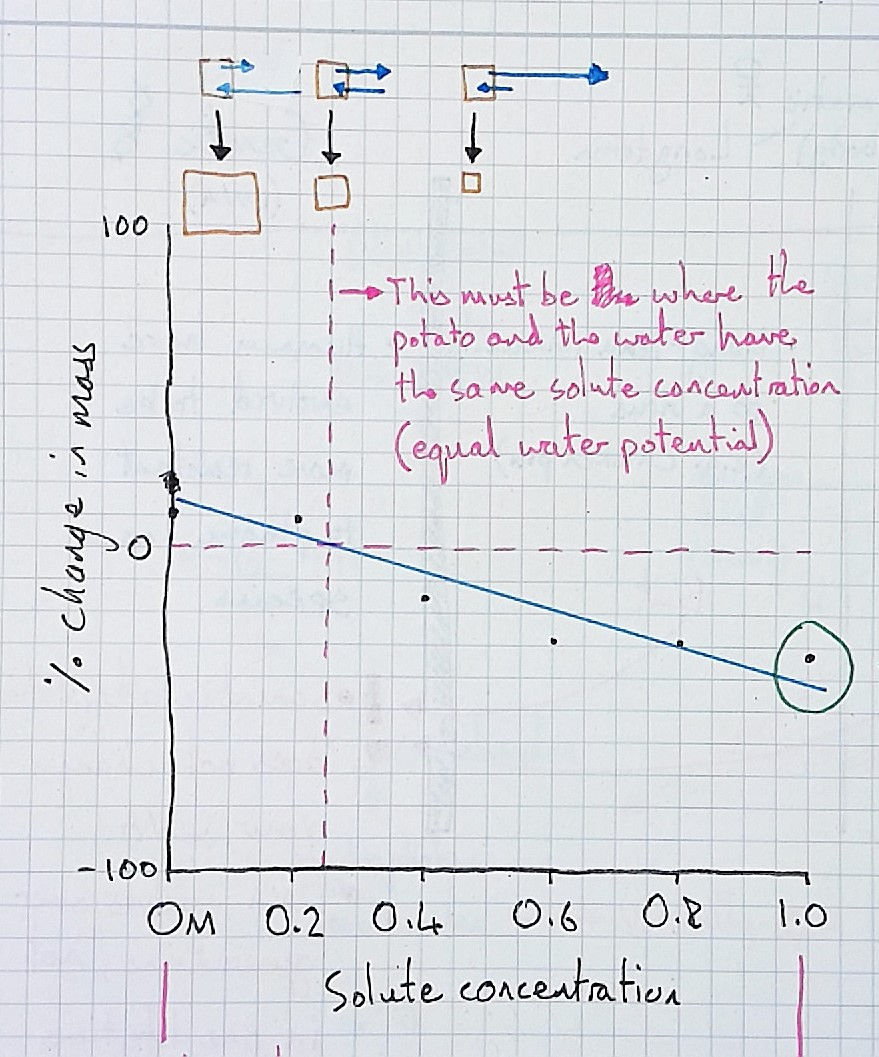 100
This must be where the
potato and the water have
the same solute concentration
(equal water potential)
% change in mass
0
-100
0M 0.2 0.4 0.6 0.8 1.0
Solute concentration